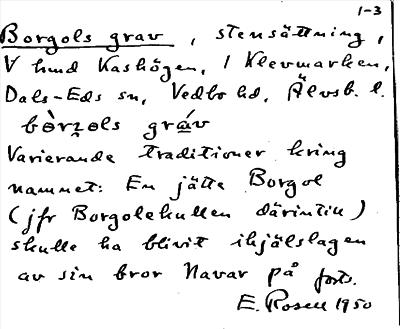 1-3
Borgols grav, stensättning,
V hmd Kashögen, i Klevmarken,
Dals-Eds sn, Vedbo hd, Älvsb. l.
Varierande traditioner kring
namnet: En jätte Borgol
(jfr Borgolekullen därintill)
skulle ha blivit ihjälslagen
av sin bror Navar på forts.
E. Rosell 1950